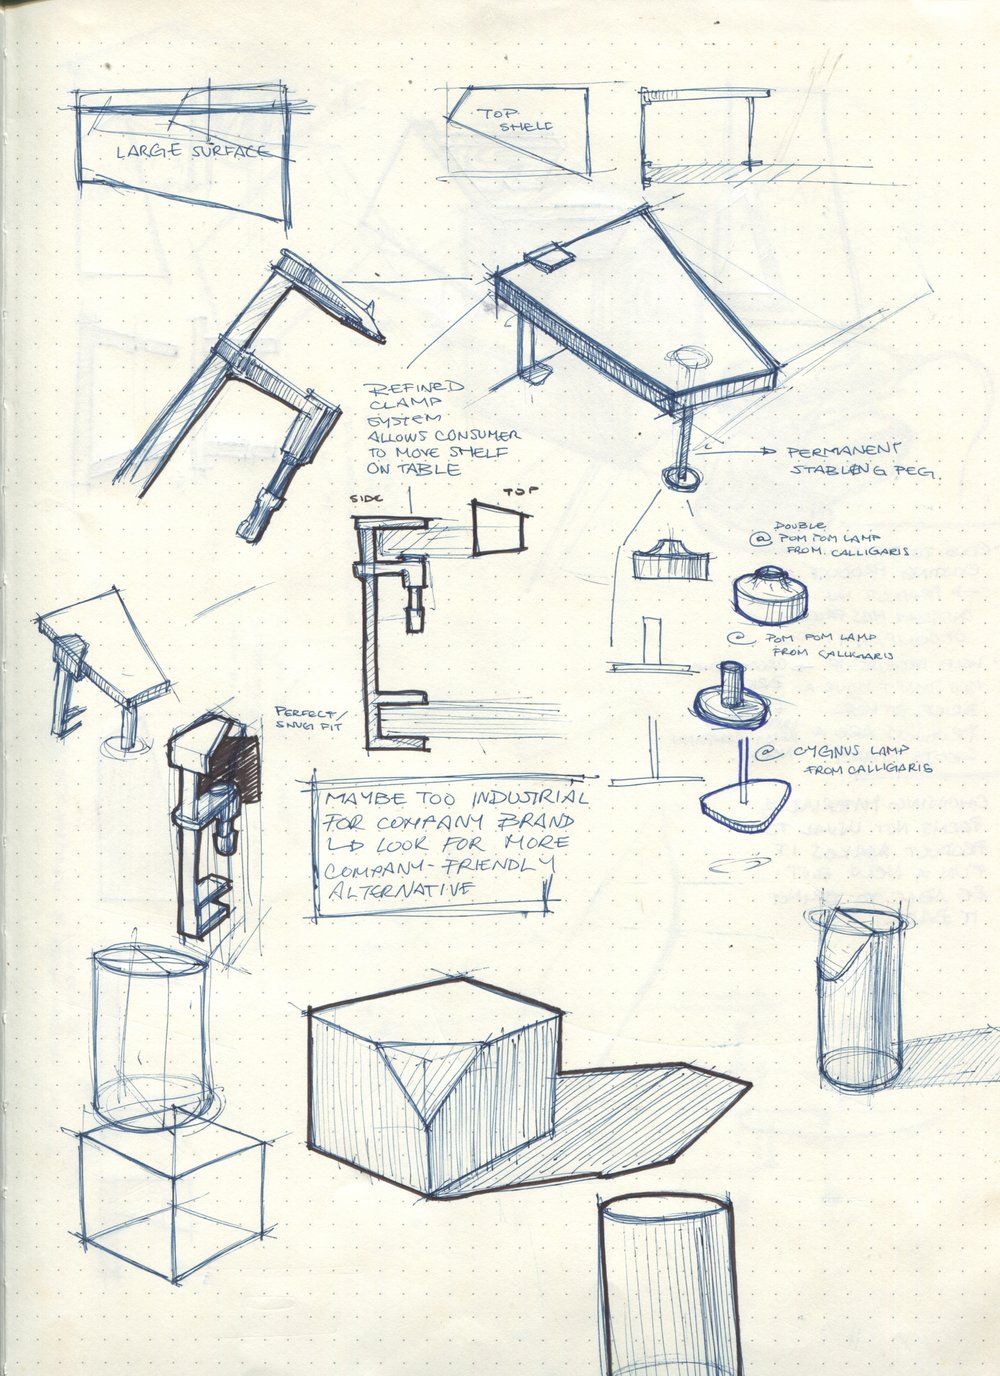 LARGE SURFACE
TOP
SHELF
REFINED
CLAMP
SYSTEM
ALLOWS CONSUMER
TO MOVE SHELF
ON TABLE
PERMANENT
STABLING PEG.
SIDE
TOP
DOUBLE
@ POM POM LAMP
FROM CALLIGARIS
@ POM POM LAMP
FROM CALLIGARIS
PERFECT/
SNUG FIT
@ CYGNUS LAMP
FROM CALLIGARIS
MAYBE TOO INDUSTRIAL
FOR COMPANY BRAND
LOOK FOR MORE
COMPANY-FRIENDLY
ALTERNATIVE